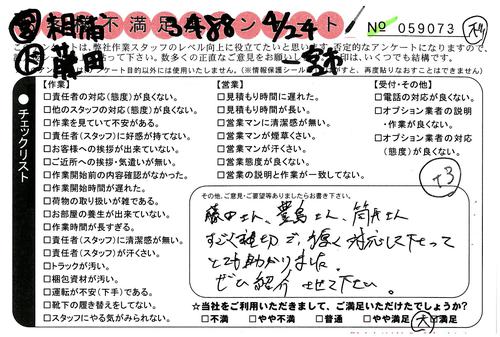 不満足 アンケート
3488 4/24
№ 059073
藤田
一宮市
アンケートは、弊社作業スタッフのレベル向上に役立てたいと思います。否定的なアンケートになりますので、
数多くの正直なご意見をお願いし
印は、いくつでも結構です。
アンケート目的以外には使用いたしません。(※情報保護シール
ますと、再度貼りなおすことはできません)
チェックリスト
【作業】
□責任者の対応(態度)が良くない。
□他のスタッフの対応(態度)が良くない。
□作業を見ていて不安がある。
□責任者(スタッフ)に好感が持てない。
□お客様への挨拶が出来ていない。
□ご近所への挨拶・気遣いが無い。
□作業開始前の内容確認がなかった。
□作業開始時間が遅れた。
□荷物の取り扱いが雑である。
□お部屋の養生が出来ていない。
□作業時間が長すぎる。
□責任者(スタッフ)に清潔感が無い。
□責任者(スタッフ)が汗くさい。
□トラックが汚い。
□梱包資材が汚い。
□運転が不安(下手)である。
□靴下の履き替えをしてない。
□スタッフにやる気がみられない。
【営業】
□見積もり時間に遅れた。
□見積もり時間が長い。
□営業マンに清潔感が無い。
□営業マンが煙草くさい。
□営業マンが汗くさい。
□営業態度が良くない。
□営業の説明と作業が一致してない。
【受付・その他】
□電話の対応が良くない。
□オプション業者の説明
・作業が良くない。
□オプション業者の対応
(態度)が良くない。
+3
その他、ご意見・ご要望等ありましたらお書き下さい。
藤田さん、豊島さん、筒井さん
すごく親切で、快く対応して下さって
とても助かりました。
ぜひ紹介させて下さい。
☆当社をご利用いただきまして、ご満足いただけたでしょうか?
□不満 □やや不満 □普通 □やや満足 大満足